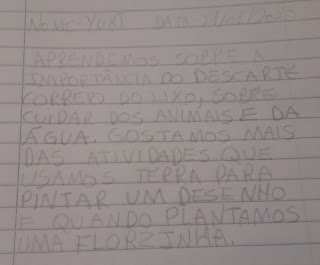 NOME: YURI DATA
APRENDEMOS SOBRE A
IMPORTÂNCIA DO DESCARTE
CORRETO DO LIXO, SOBRE
CUIDAR DOS ANIMAIS E DA
ÁGUA. GOSTAMOS MAIS
DAS ATIVIDADES QUE
USAMOS TERRA PARA
PINTAR UM DESENHO
E QUANDO PLANTAMOS
UMA FLORZINHA.